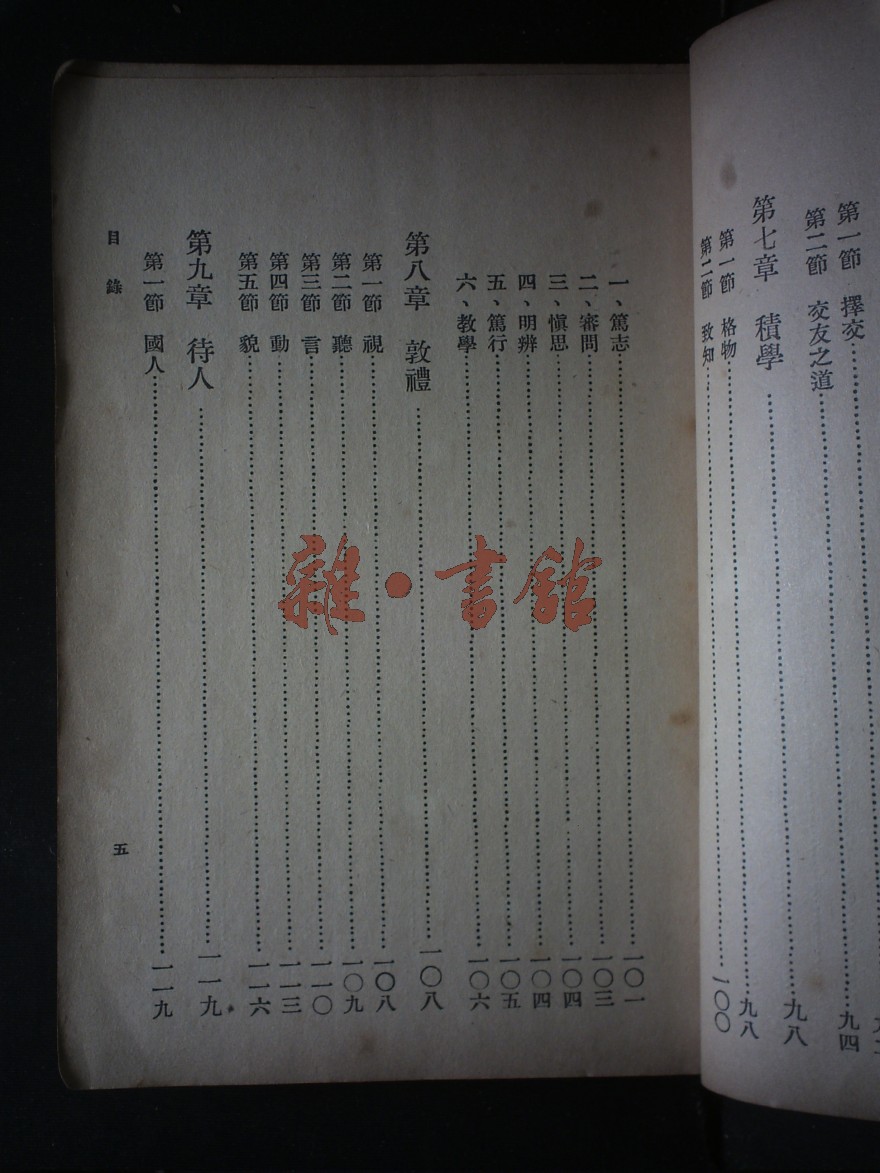 第一節 擇交……九
第二節 交友之道……九四
第七章 積學……九八
第一節 格物……九八
第二節 致知……一〇〇
一、篤志……一〇一
二、審問……一〇三
三、愼思……一〇四
四、明辨……一〇四
五、篤行……一〇五
六、教學……一〇六
第八章 敦禮……一〇八
第一節 視……一〇八
第二節 聽……一〇九
第三節 言……一一〇
第四節 動……一一三
第五節 貌……一一六
第九章 待人……一一九
第一節 國人……一一九
目錄
五
雜·書館